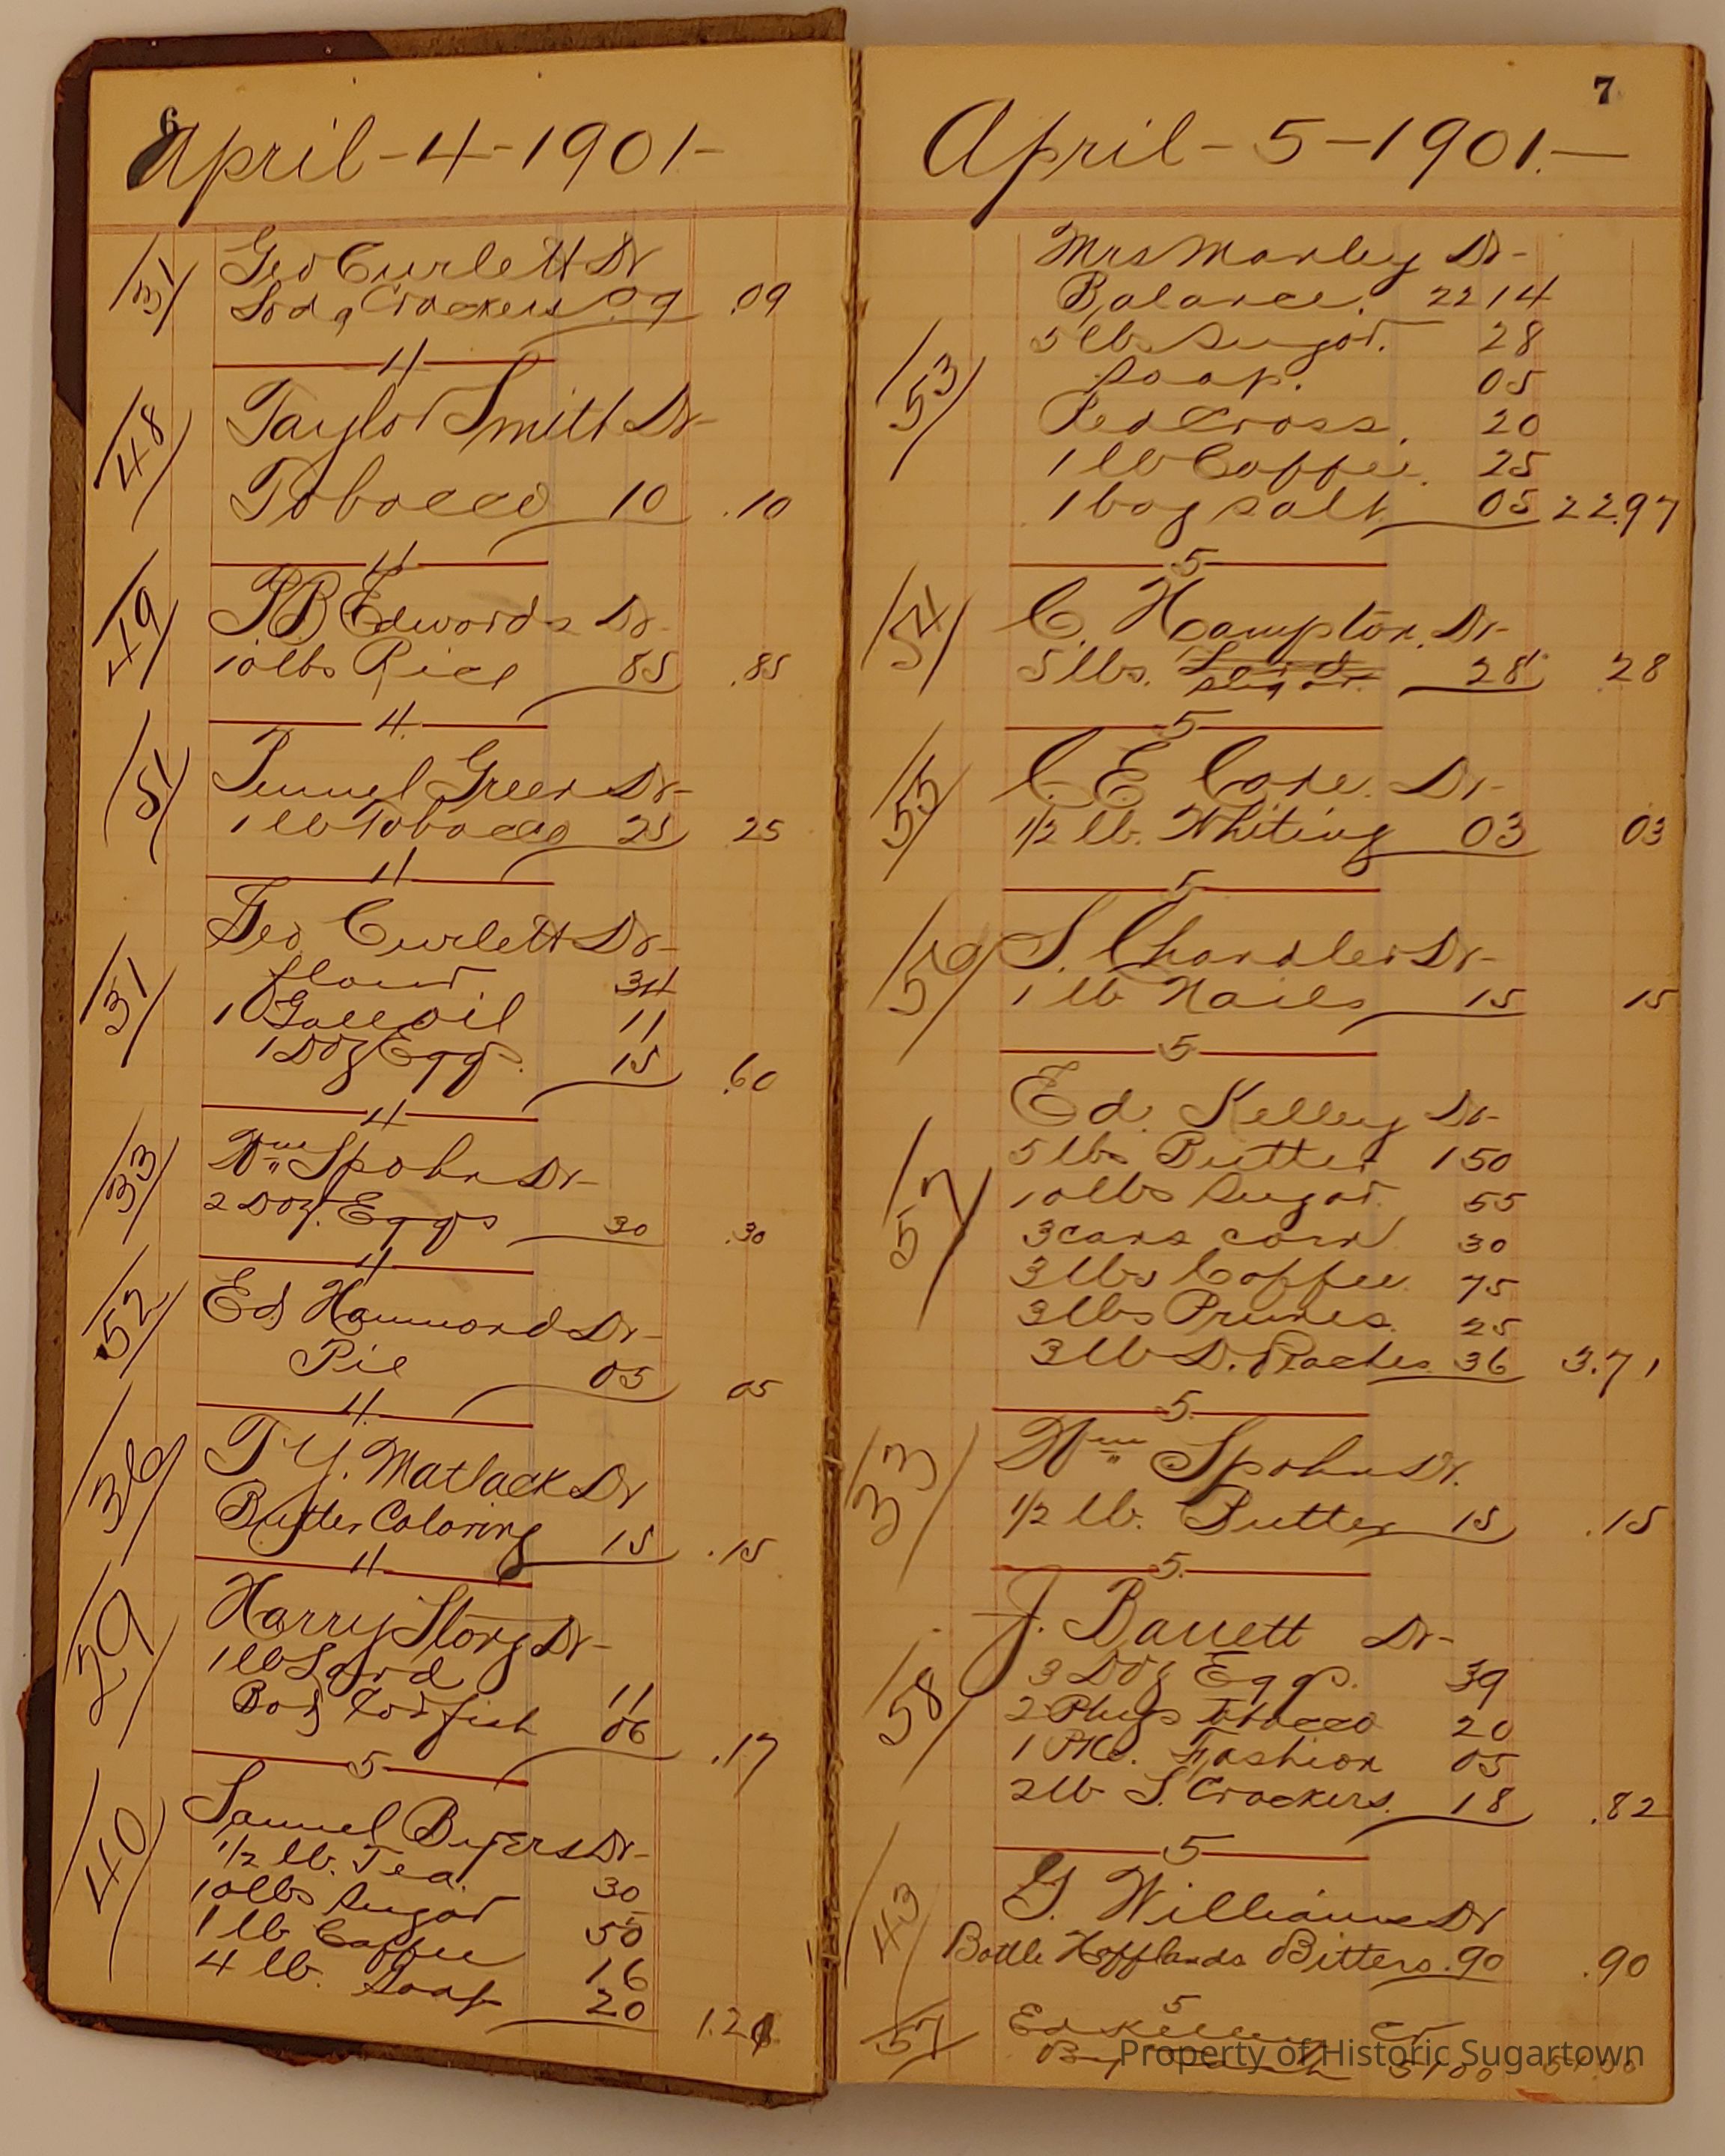 6
April-4-1901-
31 Geo Curlett Dr
Soda Crackers 09 .09
4
48 Taylor Smith Dr-
Tobacco 10 .10
4
49 P.B. Edwards Dr-
10lbs Rice 85 .85
4
51 Green Dr-
1 lb Tobacco 25 25
4
Geo Curlett Dr-
31 flour 34
1 Gall oil 11
1 Doz Eggs 15 .60
4
33 Wm Spohn Dr-
2 Doz. Eggs 30 .30
4
52 Ed Hammond Dr-
Pie 05 05
4
36 T Y. Matlack Dr
Butter Coloring 15 .15
4
29 Harry Story Dr-
1 lb Lard 11
Box Codfish 06 .17
5
40 Samuel Byers Dr-
1/2 lb. Tea. 30
10lbs Sugar 55
1 lb Coffee 16
4 lb. Soap 20 1.21
7
April-5-1901.—
Mrs Manley Dr-
Balance. 22 14
5 lbs Sugar. 28
53 Soap. 05
Red Cross. 20
1 lb Coffee. 25
1 bag salt 05 22.97
5
54 C. Hampton. Dr-
5 lbs. Lard 28 .28
Sugar.
5
55 C. E. Dr-
1/2 lb. Whiting 03 03
5
56 S. Chandler Dr-
1 lb Nails 15 15
5
Ed. Kelley Dr-
5 lbs Butter 1 50
57 10lbs Sugar. 55
3 cans corn 30
3 lbs Coffee 75
3 lbs Prunes. 25
3 lb D. Peaches 36 3.71
5
33 Wm Spohn Dr.
1/2 lb. Butter 15 .15
5
J. Barrett Dr-
3 Doz Eggs. 39
58 2 Plugs Tobacco 20
1 PKG. Fashion 05
2 lb S. Crackers. 18 .82
5
43 G. Williams Dr
Bottle Hofflands Bitters .90 .90
5
57 Ed Kelley Cr
Property of Historic Sugartown